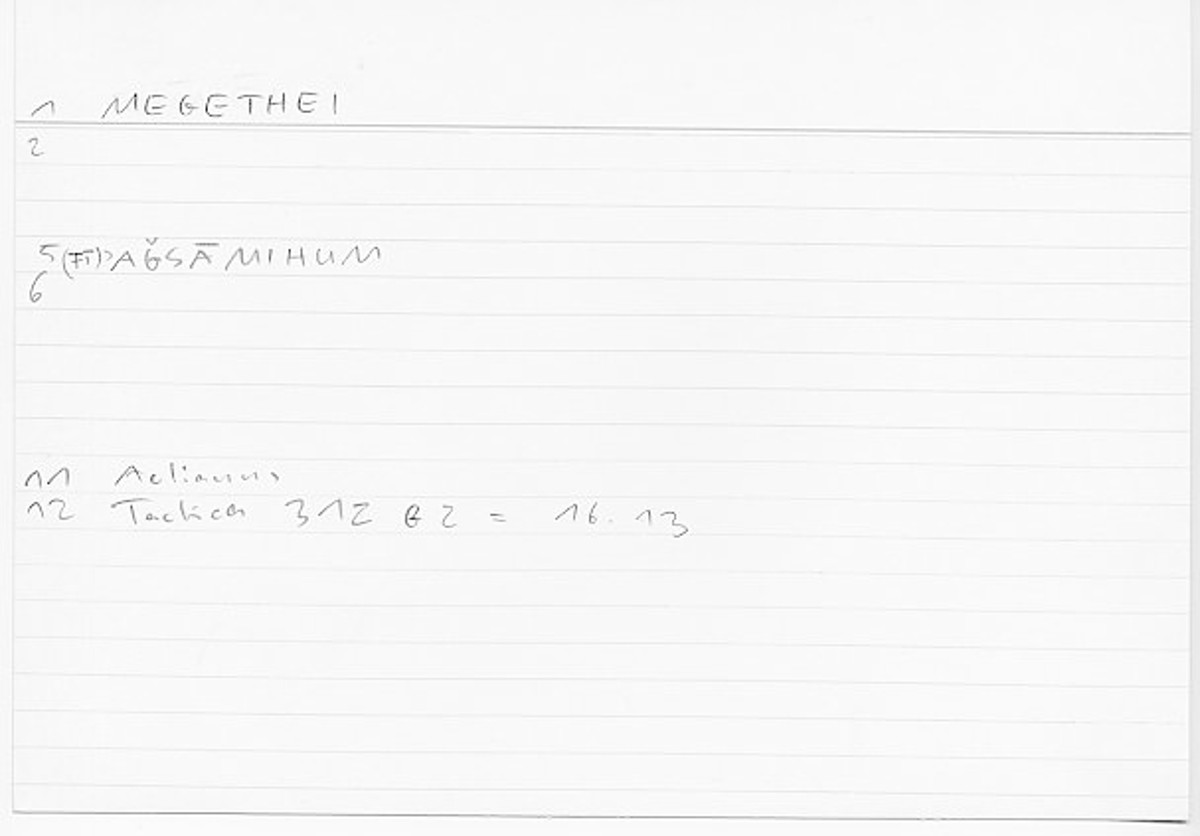 1 MEGETHEI
2
5 (FĪ) ʾAǦSĀMIHUM
6
11 Aelianus
12 Tactica 312 62 = 16.13